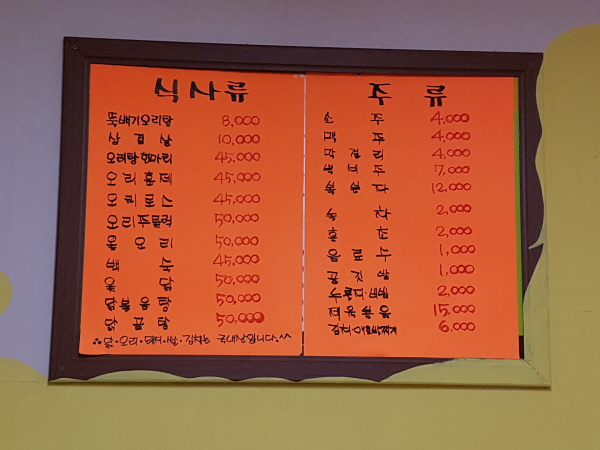 식사류
뚝배기오리탕 8,000
삼겹살 10,000
오리탕한마리 45,000
오리훈제 45,000
오리로스 45,000
오리주물럭 50,000
옻오리 50,000
백숙 45,000
옻닭 50,000
닭볶음탕 50,000
닭곰탕 50,000
닭·오리·돼지·쌀·김치는 국내산입니다.^^
주류
소주 4,000
맥주 4,000
막걸리 4,000
백세주 7,000
복분자 12,000
녹차 2,000
홍차 2,000
음료수 1,000
공기밥 1,000
누룽지·볶음밥 2,000
제육볶음 15,000
김치·애호박찌개 6,000